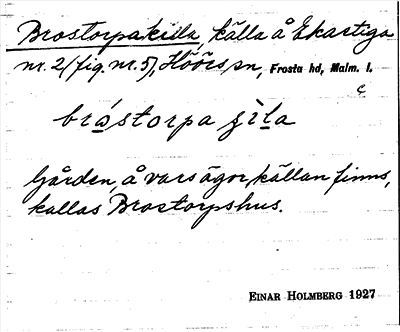 Brostorpakilla, källa å Ekastiga
nr. 2 (fig. nr. 5), Höörs sn, Frosta hd, Malm. l.
c
bróstorpa ʒila
Gården, å vars ägor källan finns,
kallas Brostorpshus.
EINAR HOLMBERG 1927